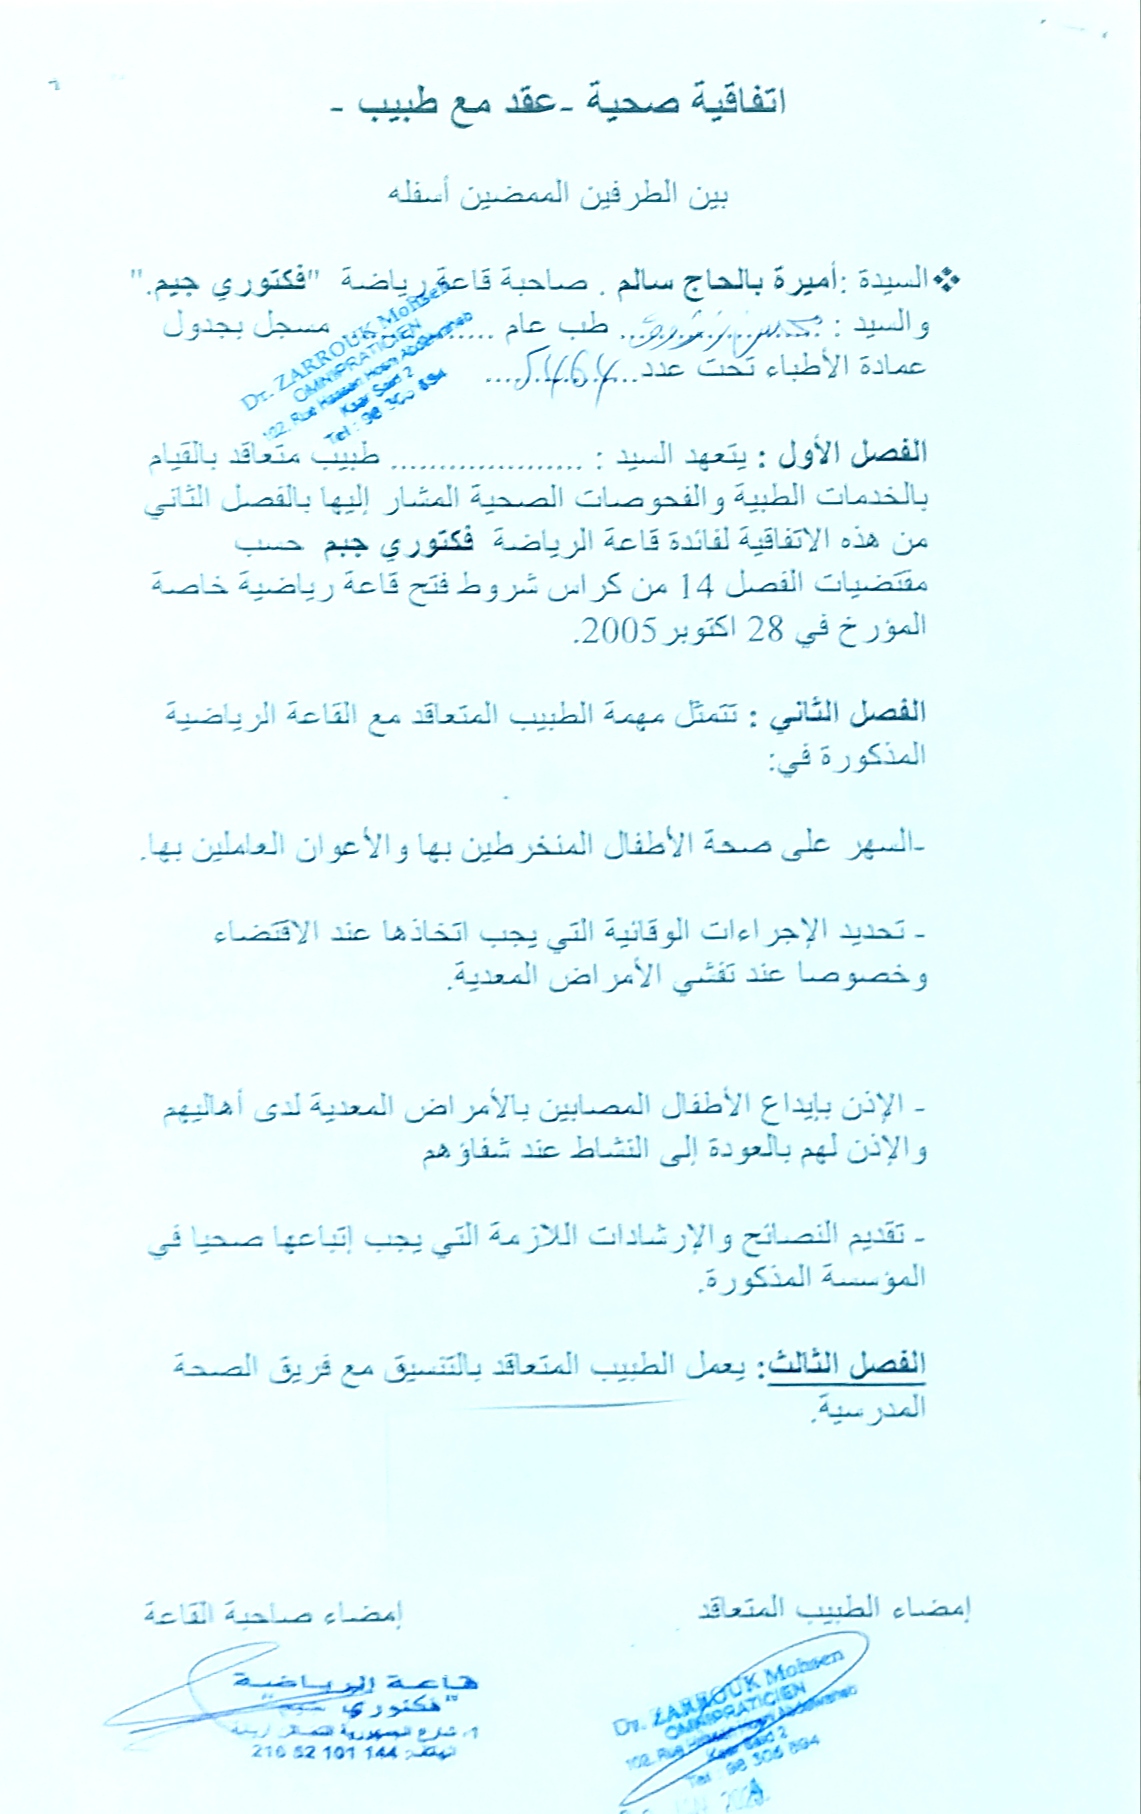 اتفاقية صحية -عقد مع طبيب -
بين الطرفين الممضين أسفله
❖ السيدة :أميرة بالحاج سالم . صاحبة قاعة رياضة "فكتوري جيم."
والسيد : محسن زروق... طب عام .............. مسجل بجدول
عمادة الأطباء تحت عدد..............5464....
Dr. ZARROUK Mohsen
OMNIPRATICIEN
102, Rue Hassan Hosni Abdelwaheb
Ksar Said 2
Tel : 98 306 894
الفصل الأول : يتعهد السيد : .................... طبيب متعاقد بالقيام
بالخدمات الطبية والفحوصات الصحية المشار إليها بالفصل الثاني
من هذه الاتفاقية لفائدة قاعة الرياضة فكتوري جيم حسب
مقتضيات الفصل 14 من كراس شروط فتح قاعة رياضية خاصة
المؤرخ في 28 اكتوبر 2005.
الفصل الثاني : تتمثل مهمة الطبيب المتعاقد مع القاعة الرياضية
المذكورة في:
-السهر على صحة الأطفال المنخرطين بها والأعوان العاملين بها.
- تحديد الإجراءات الوقائية التي يجب اتخاذها عند الاقتضاء
وخصوصا عند تفشي الأمراض المعدية.
- الإذن بإيداع الأطفال المصابين بالأمراض المعدية لدى أهاليهم
والإذن لهم بالعودة إلى النشاط عند شفاؤهم
- تقديم النصائح والإرشادات اللازمة التي يجب إتباعها صحيا في
المؤسسة المذكورة.
الفصل الثالث: يعمل الطبيب المتعاقد بالتنسيق مع فريق الصحة
المدرسية.
إمضاء الطبيب المتعاقد
إمضاء صاحبة القاعة
Dr. ZARROUK Mohsen
OMNIPRATICIEN
102, Rue Hassan Hosni Abdelwaheb
Ksar Said 2
Tel : 98 306 894
قاعة الرياضية
"فكتوري جيم"
1، شارع الجمهورية أريانة
الهاتف: 216 52 101 144